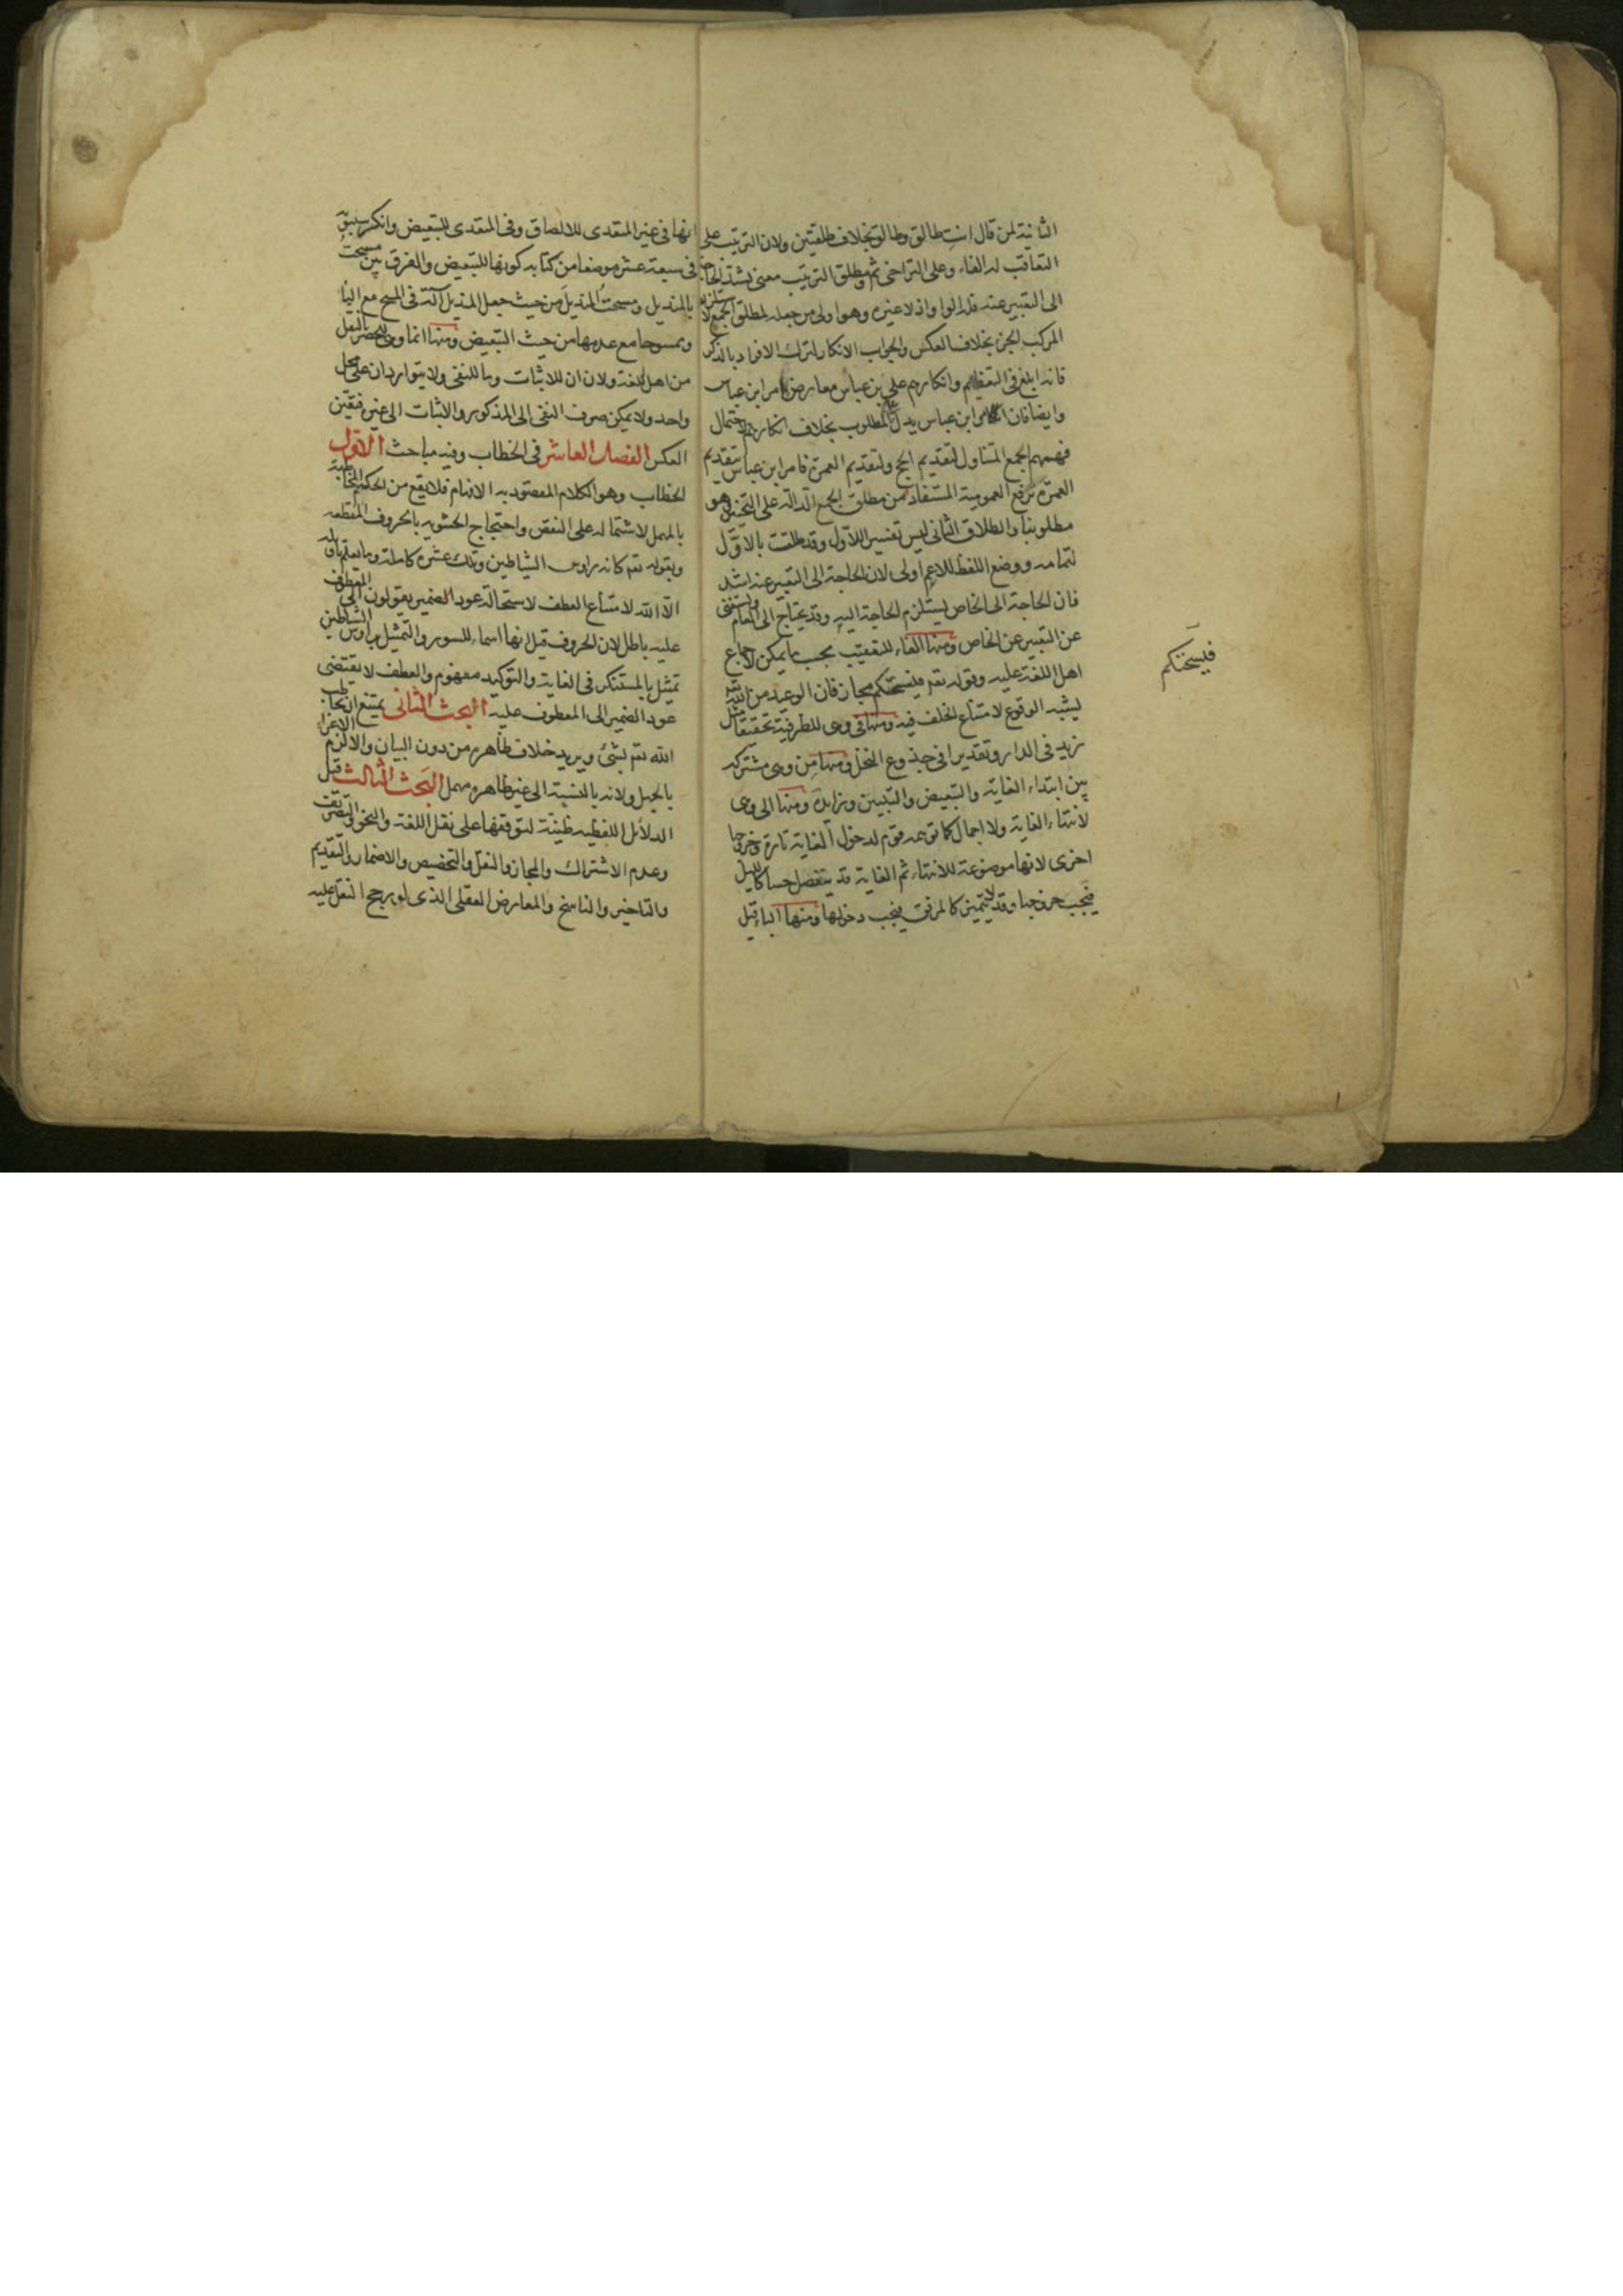 الثانية لمن قال انت طالق وطالق بخلاف طلقتين ولان الترتيب على
التعاقب له الفاء وعلى التراخى ثم ومطلق الترتيب معنى تشتد الحاجة
الى التعبير عنه فله الواو اذ لا غيره وهو اولى من جعله لمطلق الجمع لاستلزام
المركب الجزء بخلاف العكس والجواب الانكار لترك الافراد بالذكر
فانه ابلغ فى التعظيم وانكارهم على بن عباس معارض بامر ابن عباس
وايضا فان امر ابن عباس يدل على المطلوب بخلاف انكارهم لاحتمال
فهمهم الجمع المتناول لتقديم الحج ولتقديم العمرة فامر ابن عباس بتقديم
العمرة يرفع العمومية المستفادة من مطلق الجمع الدالة على التخيير وهو
مطلوبنا والطلاق الثانى ليس تفسيرا للاول وقد طلقت بالاول
لتمامه ووضع اللفظ للاعم اولى لان الحاجة الى التعبير عنه اشد
فان الحاجة الى الخاص يستلزم الحاجة اليه وقد يحتاج الى العام ويستغنى
عن التعبير عن الخاص ومنها الفاء للتعقيب بحسب ما يمكن لاجماع
اهل اللغة عليه وقوله تعم فيسحتكم مجاز فان الوعيد من الله
يشبه الوقوع لامتناع الخلف فيه ومنها فى وهى للظرفية تحقيقا مثل
زيد فى الدار وتقديرا فى جذوع النخل ومنها من وهى مشتركه
بين ابتداء الغاية والتبعيض والتبيين وزايدة ومنها الى وهى
لانتهاء الغاية ولا اجمال كما توهمه قوم لدخول الغاية تارة وخروجها
اخرى لانها موضوعة للانتهاء ثم الغاية قد ينفصل حسا كالليل
فيجب خروجها وقد لا يتميز كالمرفق فيجب دخولها ومنها الباء قيل
فيسحتكم
انها فى غير المتعدى للالصاق وفى المتعدى للتبعيض وانكر سيبويه
فى سبعة عشر موضعا من كتابه كونها للتبعيض والفرق بين مسحت
بالمنديل ومسحت المنديل من حيث جعل المنديل آلة فى المسح مع الباء
وممسوحا مع عدمها من حيث التبعيض ومنها انما وهى للحصر بالنقل
من اهل اللغة ولان ان للاثبات وما للنفى ولا يتواردان على محل
واحد ولا يمكن صرف النفى الى المذكور والاثبات الى غيره فتعين
العكس الفصل العاشر فى الخطاب وفيه مباحث الاول
الخطاب وهو الكلام المقصود به الافهام فلا يقع من الحكيم المخاطبة
بالمهمل لاشتماله على النقص واحتجاج الحشويه بالحروف المقطعه
وبقوله تعم كانه رؤس الشياطين وتلك عشرة كاملة وما يعلم تاويله
الا الله لامتناع العطف لاستحالة عود الضمير يقولون الى المعطوف
عليه باطل لان الحروف قيل انها اسماء للسور والتمثيل برؤس الشياطين
تمثيل بالمستنكر فى الغاية والتوكيد مفهوم والعطف لا يقتضى
عود الضمير الى المعطوف عليه البحث الثانى يمتنع ان يخاطب
الله تعم بشئ ويريد خلاف ظاهره من دون البيان والا لزم الاغراء
بالجهل ولانه بالنسبة الى غير ظاهره مهمل البحث الثالث قيل
الدلائل اللفظيه ظنية لتوقفها على نقل اللغة والنحو والتصريف
وعدم الاشتراك والمجاز والنقل والتخصيص والاضمار والتقديم
والتاخير والناسخ والمعارض العقلى الذى لو يرجح النقل عليه